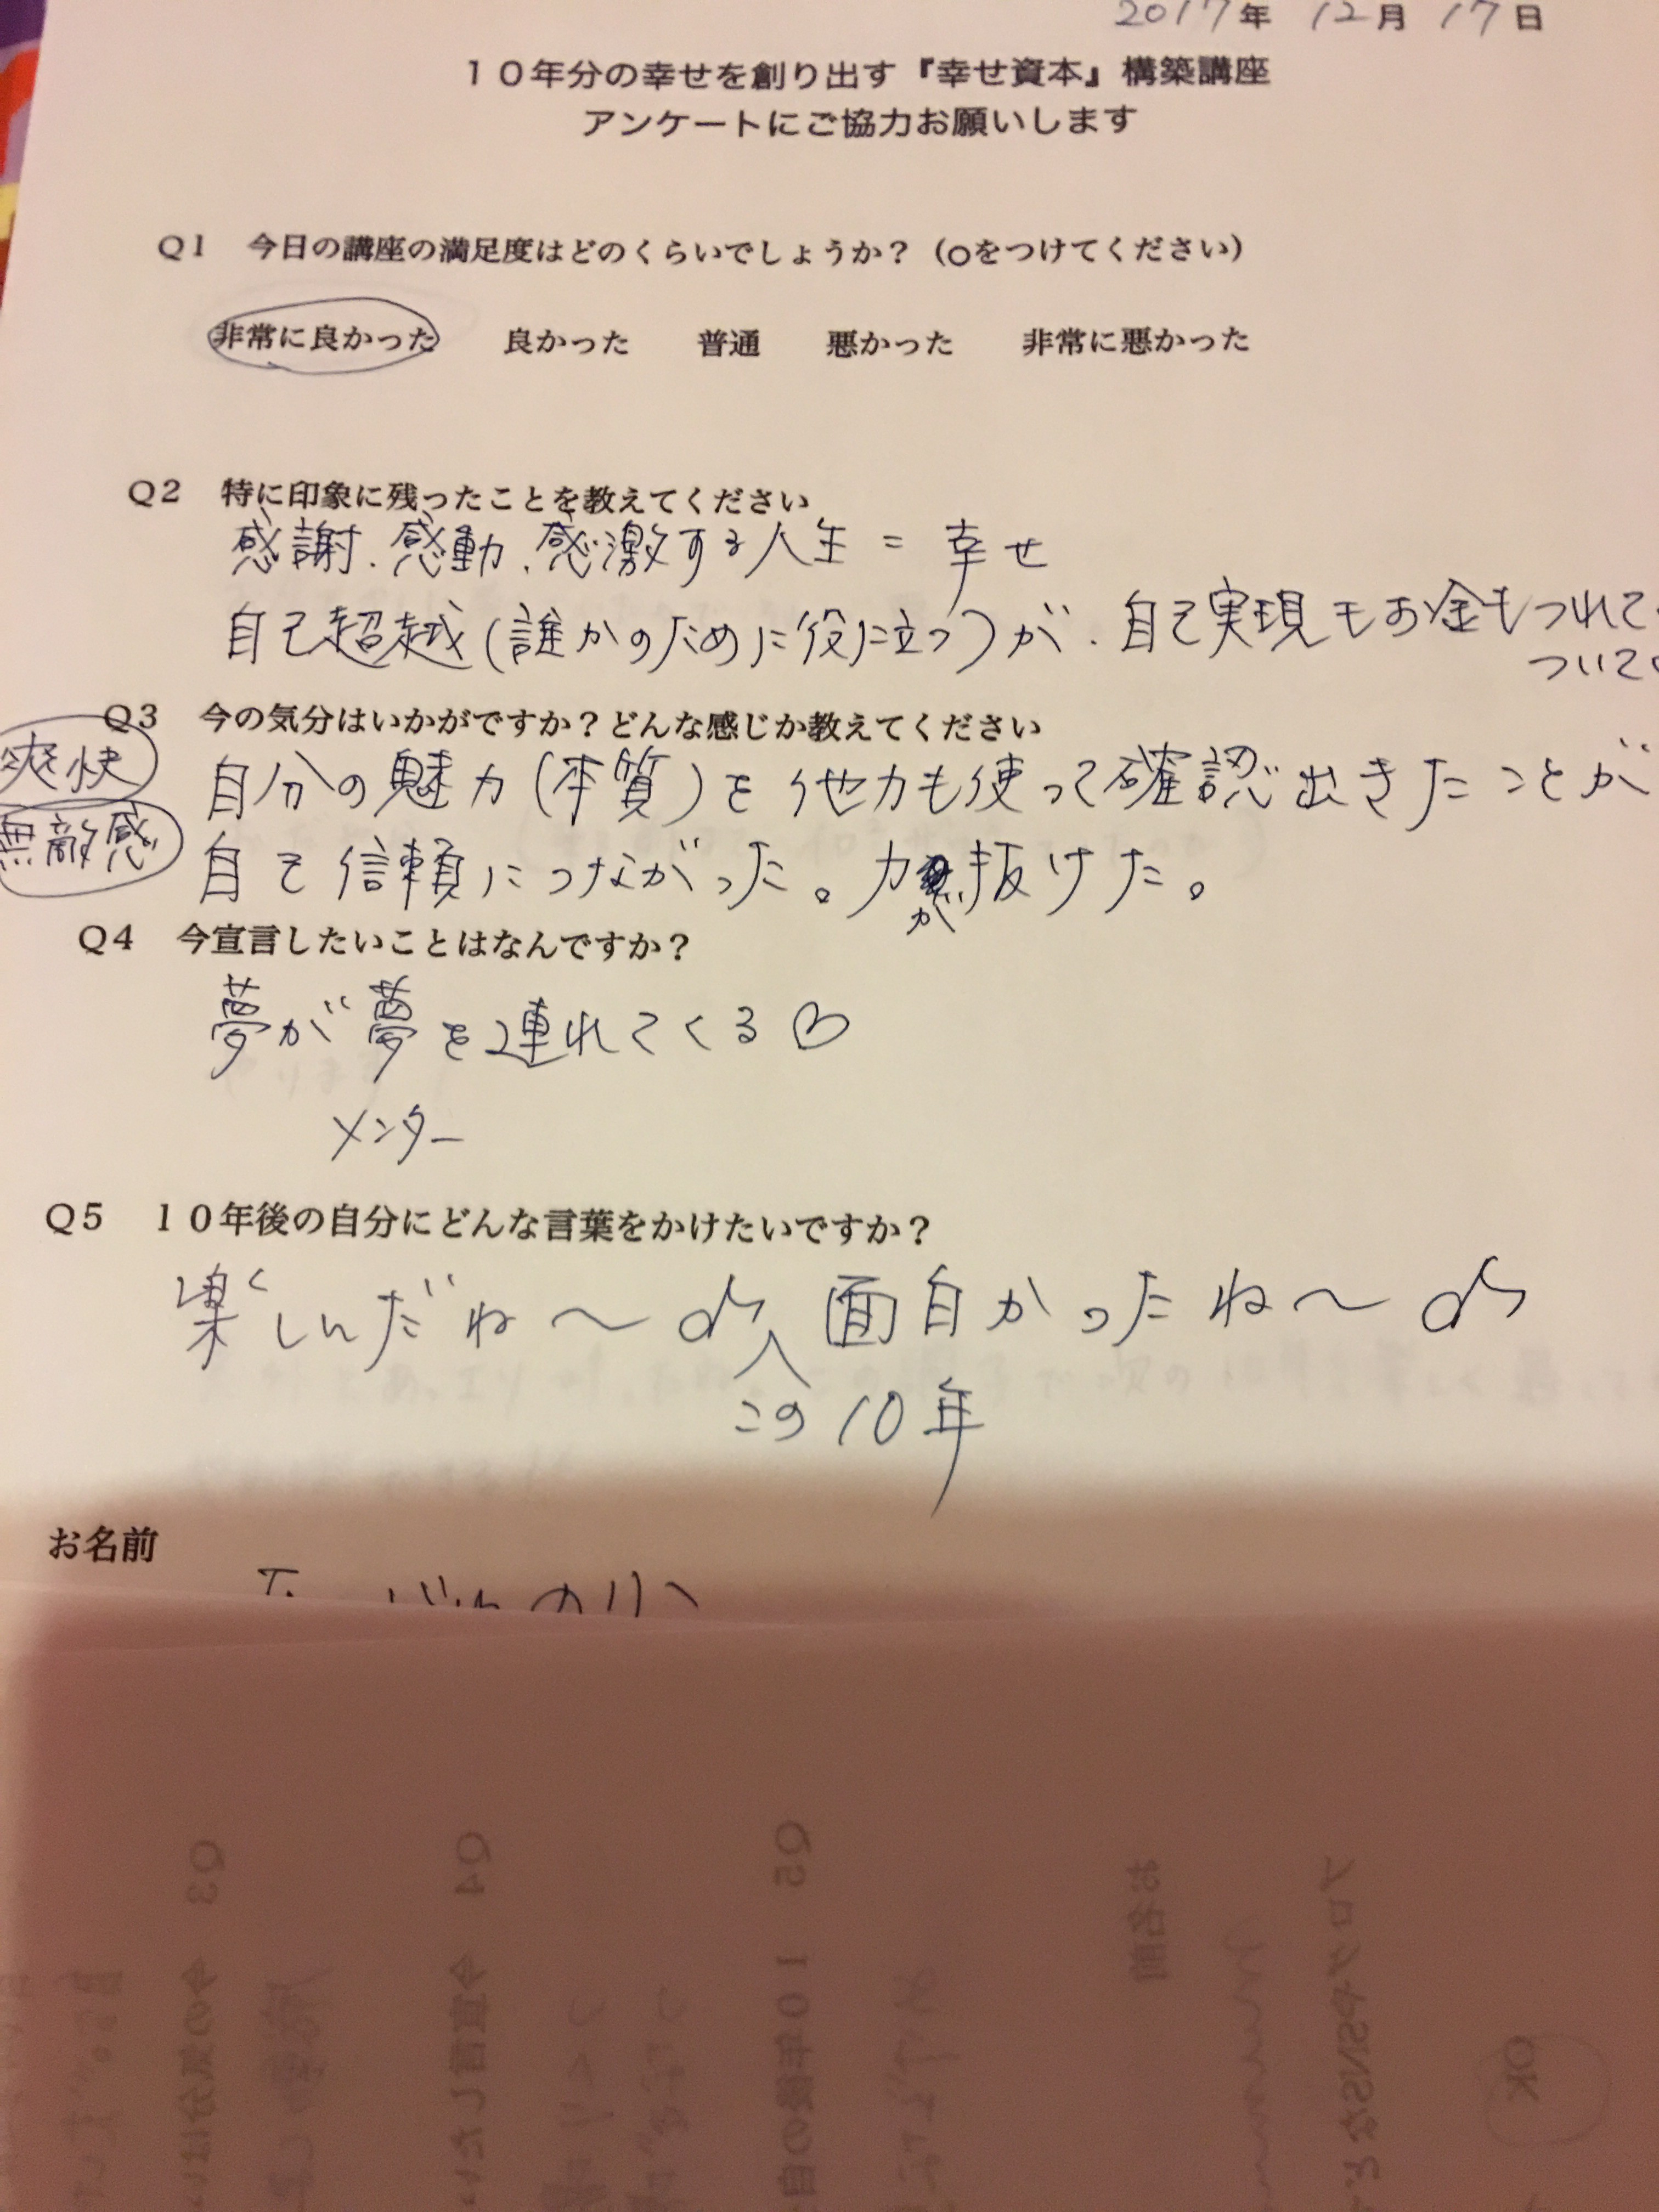 2017年 12月 17日
10年分の幸せを創り出す『幸せ資本』構築講座
アンケートにご協力お願いします
Q1 今日の講座の満足度はどのくらいでしょうか？（○をつけてください）
非常に良かった 良かった 普通 悪かった 非常に悪かった
Q2 特に印象に残ったことを教えてください
感謝、感動、感激する人生 = 幸せ
自己超越(誰かのために役に立つ)が、自己実現もお金もつれて
ついて
Q3 今の気分はいかがですか？どんな感じか教えてください
爽快
無敵感
自分の魅力(本質)を他力も使って確認出きたことが
自己信頼につながった。力が抜けた。
Q4 今宣言したいことはなんですか？
夢が夢を連れてくる♡
メンター
Q5 10年後の自分にどんな言葉をかけたいですか？
楽しんだね〜♪ 面白かったね〜♪
この10年
お名前
Q3 今の気分はい
Q4 今宣言したい
Q5 10年後の自
お名前
ブログやSNS
OK